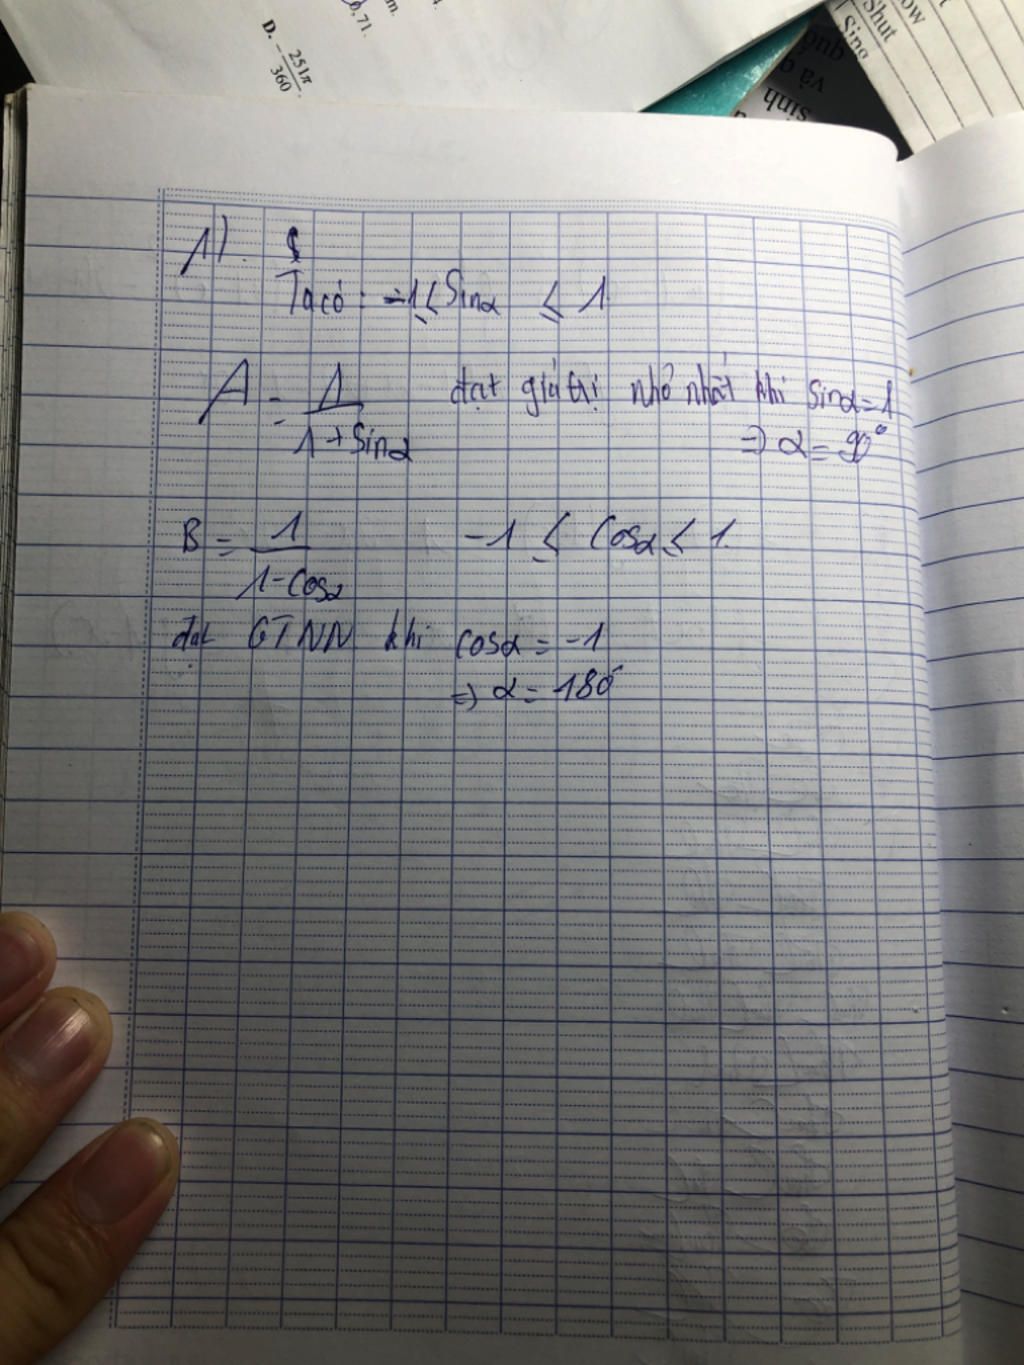 0,71.
D. -251π/360.
Shut
Sing
quố
và q
sinh
1).
Ta có: -1 ≤ Sinα ≤ 1
A = 1/(1 + Sinα) đạt giá trị nhỏ nhất khi Sinα = 1
=> α = 90°
B = 1/(1 - Cosα) -1 ≤ Cosα ≤ 1.
đạt GTNN khi cosα = -1
=> α = 180°